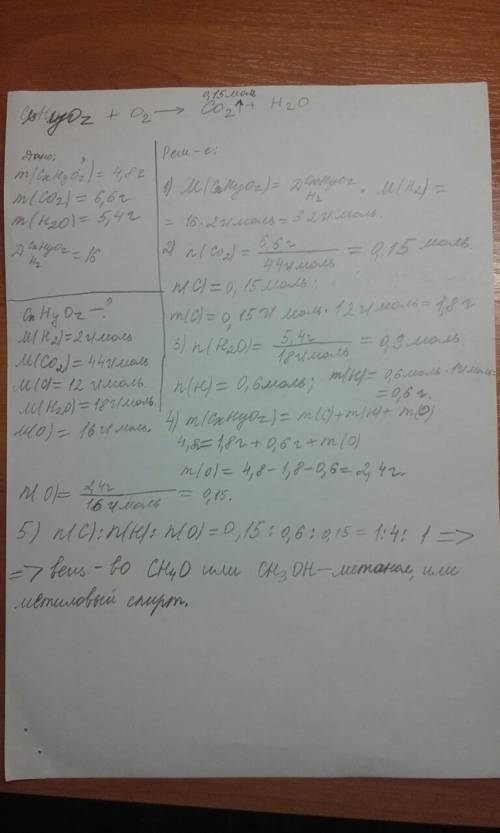 CxHyOz + O2 → CO2↑ + H2O
0,15 моль
Дано:
m(CxHyOz) = 4,8г
m(CO2) = 6,6г
m(H2O) = 5,4г
D CxHyOz H2 = 16
CxHyOz – ?
M(H2) = 2г/моль
M(CO2) = 44г/моль
M(C) = 12 г/моль
M(H2O) = 18г/моль
M(O) = 16г/моль.
Реш-е:
1) M(CxHyOz) = D CxHyOz H2 · M(H2) =
= 16 · 2г/моль = 32г/моль.
2) n(CO2) = 6,6г / 44г/моль = 0,15 моль.
n(C) = 0,15моль;
m(C) = 0,15 моль · 12г/моль = 1,8г
3) n(H2O) = 5,4г / 18г/моль = 0,3моль.
n(H) = 0,6моль; m(H) = 0,6моль · 1г/моль =
= 0,6г.
4) m(CxHyOz) = m(C) + m(H) + m(O)
4,8 = 1,8г + 0,6г + m(O)
m(O) = 4,8 – 1,8 – 0,6 = 2,4г.
n(O) = 2,4г / 16г/моль = 0,15.
5) n(C) : n(H) : n(O) = 0,15 : 0,6 : 0,15 = 1 : 4 : 1 =>
=> вещ-во CH4O или CH3OH – метанол, или
метиловый спирт.